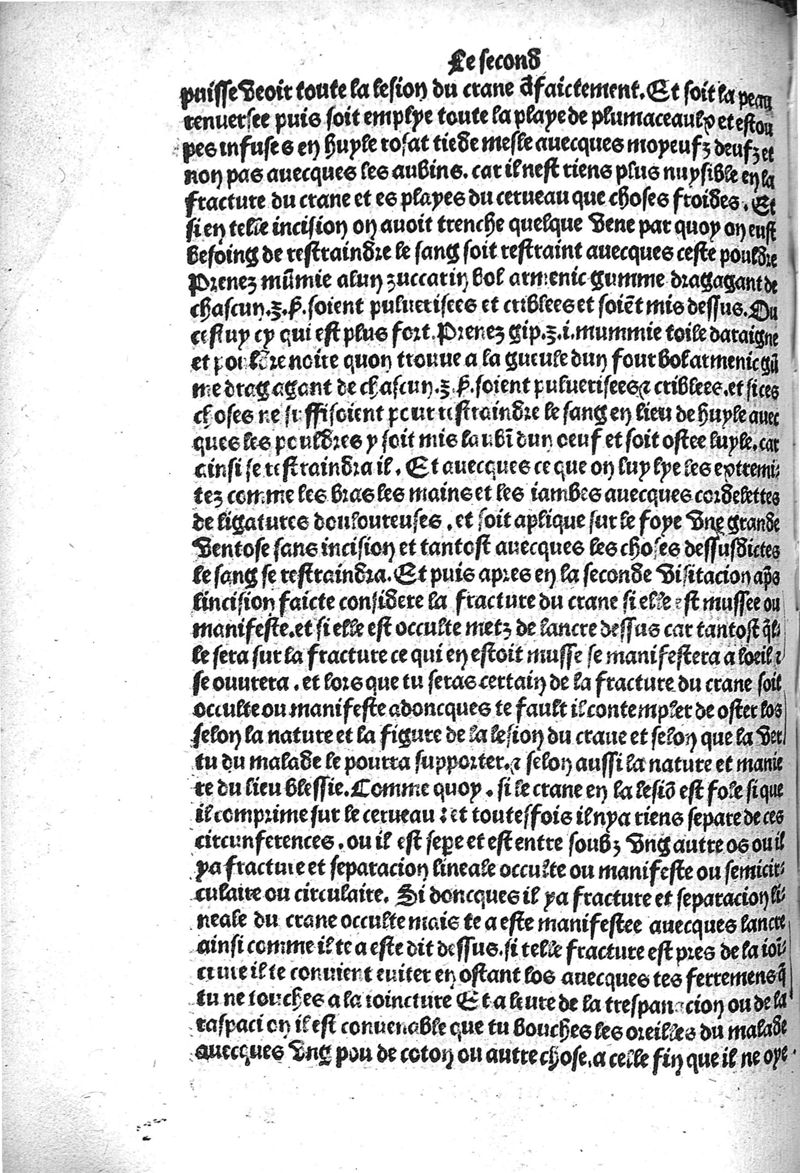 Le second
puisse veoir toute la lesion du crane ꝑfaictement. Et soit la peau
renuersee puis soit emplye toute la playe de plumaceaulx et estou
pes infuses en huyle rosat tiede mesle auecques moyeufz deufz et
non pas auecques les aubins. car il nest riens plus nuysible en la
fracture du crane et es playes du cerueau que choses froides. Et
si en telle incision on auoit trenche quelque vene par quoy on eust
besoing de restraindre le sang soit restraint auecques ceste pouldre
Prenez mūmie alun zuccarin bol armenic gumme dragagant de
chascun.ʒ.ß.soient puluerisees et criblees et soiēt mis dessus. Ou
cestuy cy qui est plus fort. Prenez gip.ʒ.i. mummie toile daraigne
et pouldre noire quon trouue a la gueule dun four bol armenic gū
me dragagant de chascun.ʒ.ß.soient puluerisees ⁊ criblees. et si ces
choses ne suffisoient pour restraindre le sang en lieu de huyle auec
ques les pouldres y soit mis laubī dun oeuf et soit ostee luyle. car
ainsi se restraindra il. Et auecques ce que on luy lye les extremi⸗
tez comme les bras les mains et les iambes auecques cordelettes
de ligatures douloureuses. et soit aplique sur le foye vng grande
ventose sans incision et tantost auecques les choses dessusdictes
le sang se restraindra. Et puis apres en la seconde visitacion apꝭs
lincision faicte considere la fracture du crane si elle est mussee ou
manifeste. et si elle est occulte metz de lancre dessus car tantost q̄l⸗
le sera sur la fracture ce qui en estoit musse se manifestera a loeil ⁊
se ouurera. et lors que tu seras certain de la fracture du crane soit
occulte ou manifeste adoncques te fault il contempler de oster los
selon la nature et la figure de la lesion du crane et selon que la ver
tu du malade le pourra supporter. ⁊ selon aussi la nature et manie
re du lieu blessie. Comme quoy. si le crane en la lesiō est fole si que
il comprime sur le cerueau : et toutesfois il nya riens separe de ces
circunferences. ou il est seꝑe et est entre soubz vng autre os ou il
ya fracture et separacion lineale occulte ou manifeste ou semicir⸗
culaire ou circulaire. Si doncques il ya fracture et separacion li⸗
neale du crane occulte mais te a este manifestee auecques lancre
ainsi comme il te a este dit dessus. si telle fracture est pres de la ioī⸗
cture il te conuient euiter en ostant los auecques tes ferremens q̄
tu ne touches a la ioincture Et a leure de la trespanacion ou de la
raspacion il est conuenable que tu bouches les oreilles du malade
auecques vng pou de coton ou autre chose. a celle fin que il ne oye